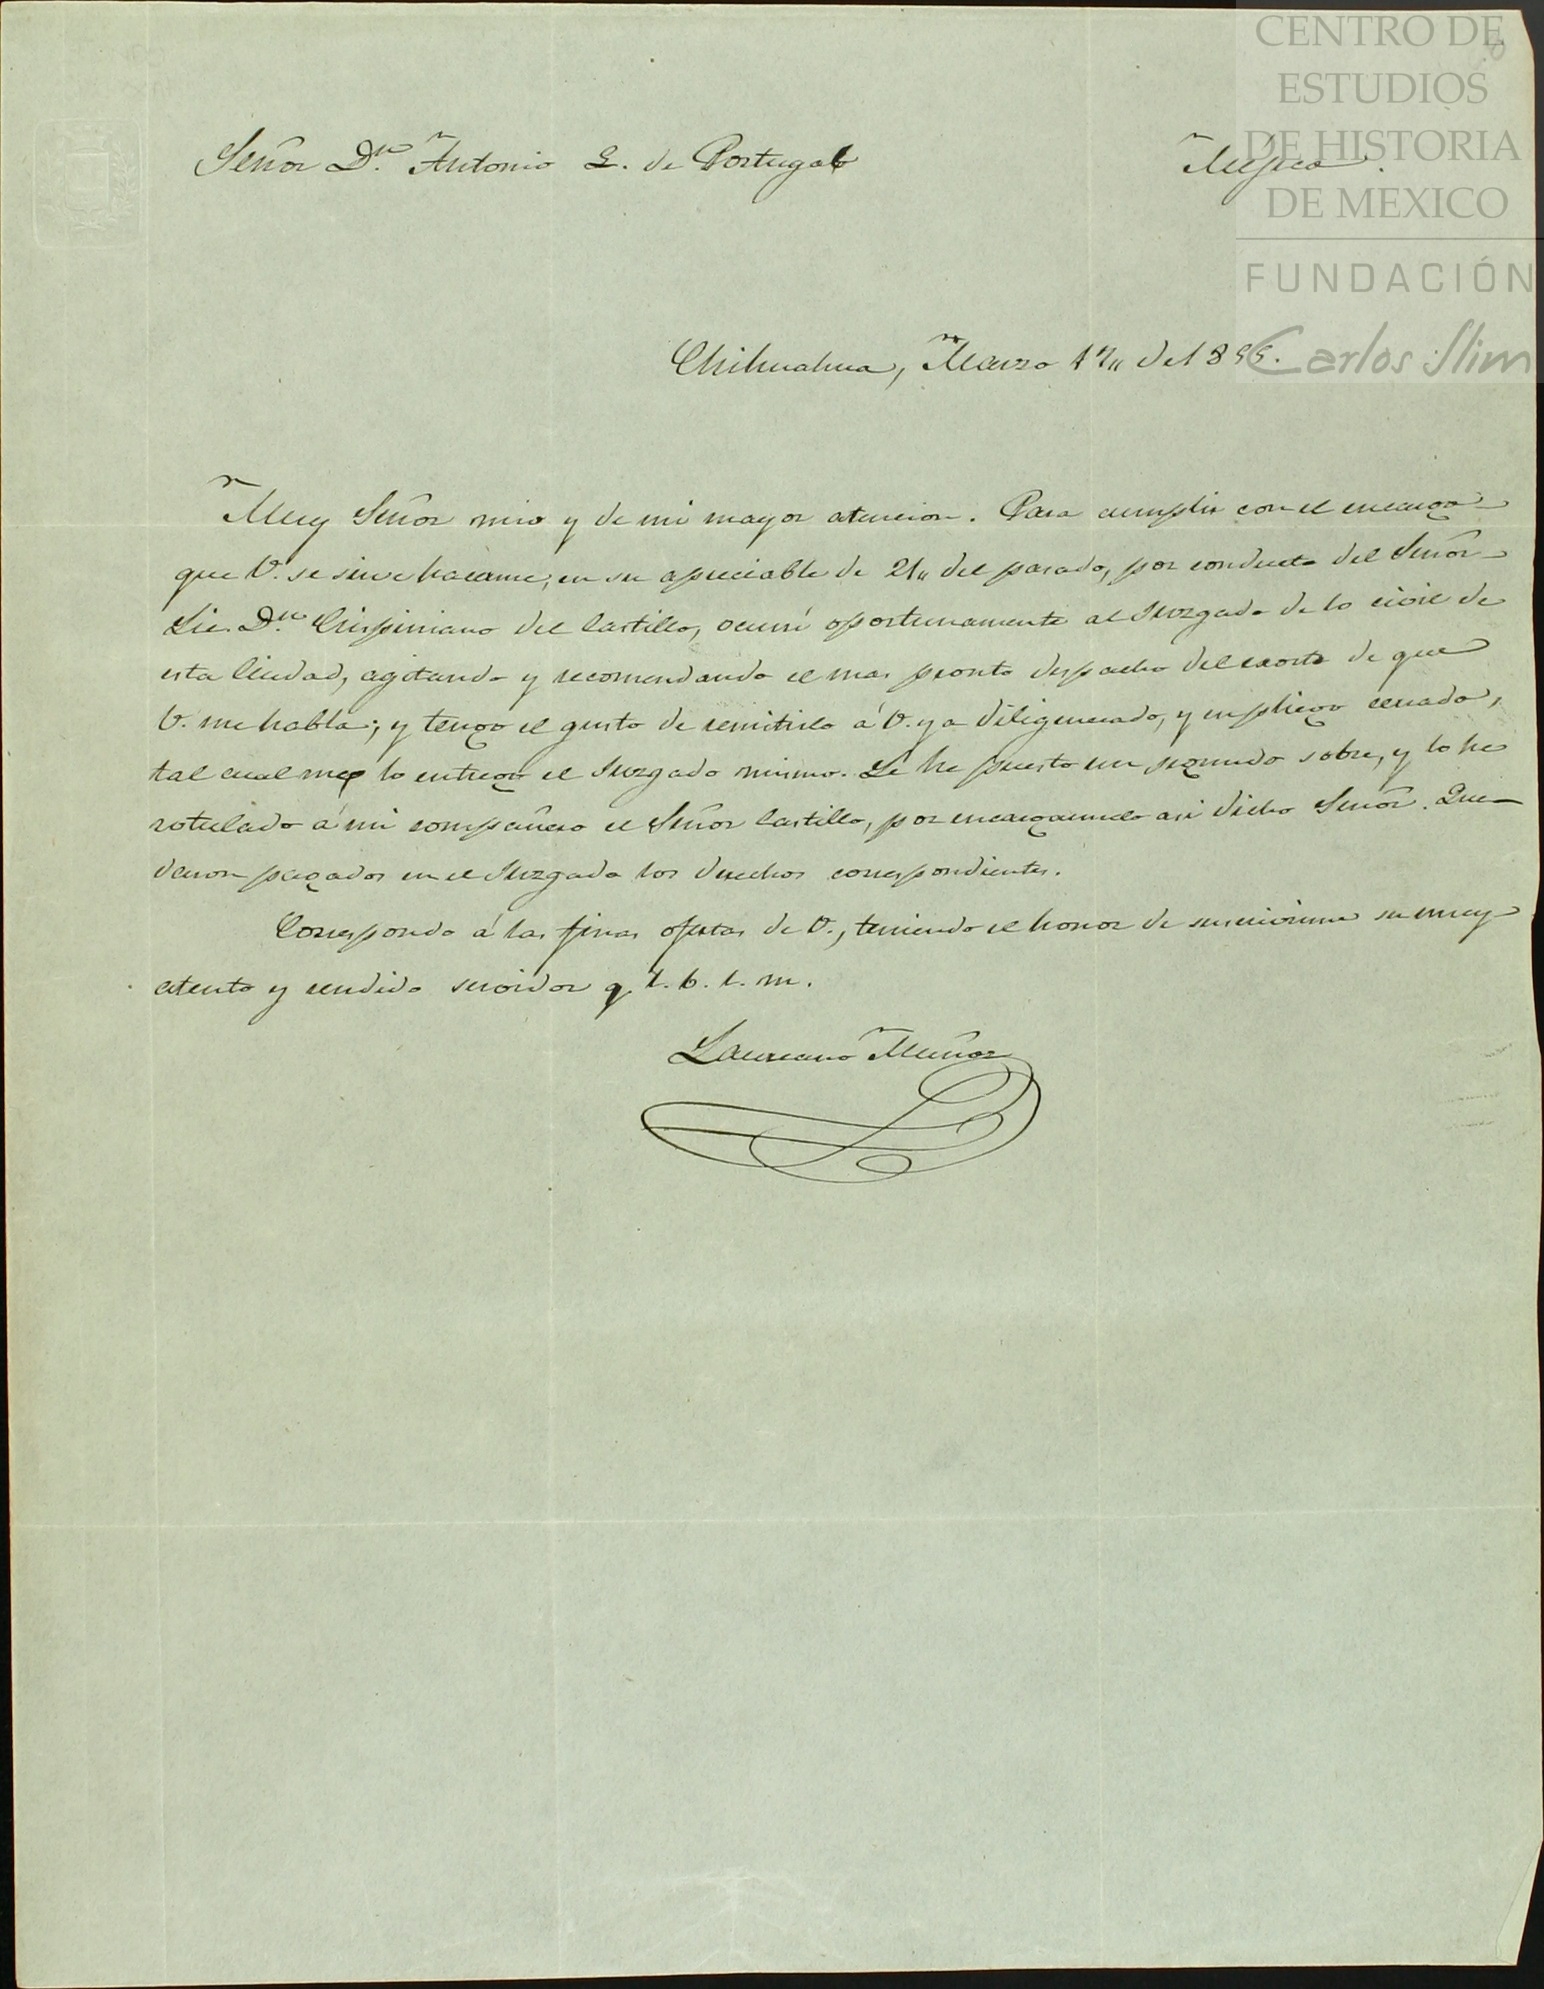 CENTRO DE
ESTUDIOS
DE HISTORIA
DE MEXICO
FUNDACIÓN
Carlos Slim
Señor Dn. Antonio L. de Portugal
Méjico.
Chihuahua, Marzo 17,, de 1855.
Muy Señor mio y de mi mayor atencion. Para cumplir con el encargo
que V. se sirve hacerme, en su apreciable de 21,, del pasado, por conducto del Señor
Lic. Dn. Crispiniano del Castillo, ocurrí oportunamente al Juzgado de lo civil de
esta Ciudad, agitando y recomendando el mas pronto despacho del exorto de que
V. me habla; y tengo el gusto de remitirlo á V. ya diligenciado, y en pliego cerrado,
tal cual me lo entregó el Juzgado mismo. Le he puesto un segundo sobre, y lo he
rotulado á mi compañero el Señor Castillo, por encargarmelo asi dicho Señor. Que-
daron pagados en el Juzgado los derechos correspondientes.
Correspondo á las finas ofertas de V., teniendo el honor de suscribirme su muy
atento y rendido servidor q. s. b. s. m.
Laureano Muñoz